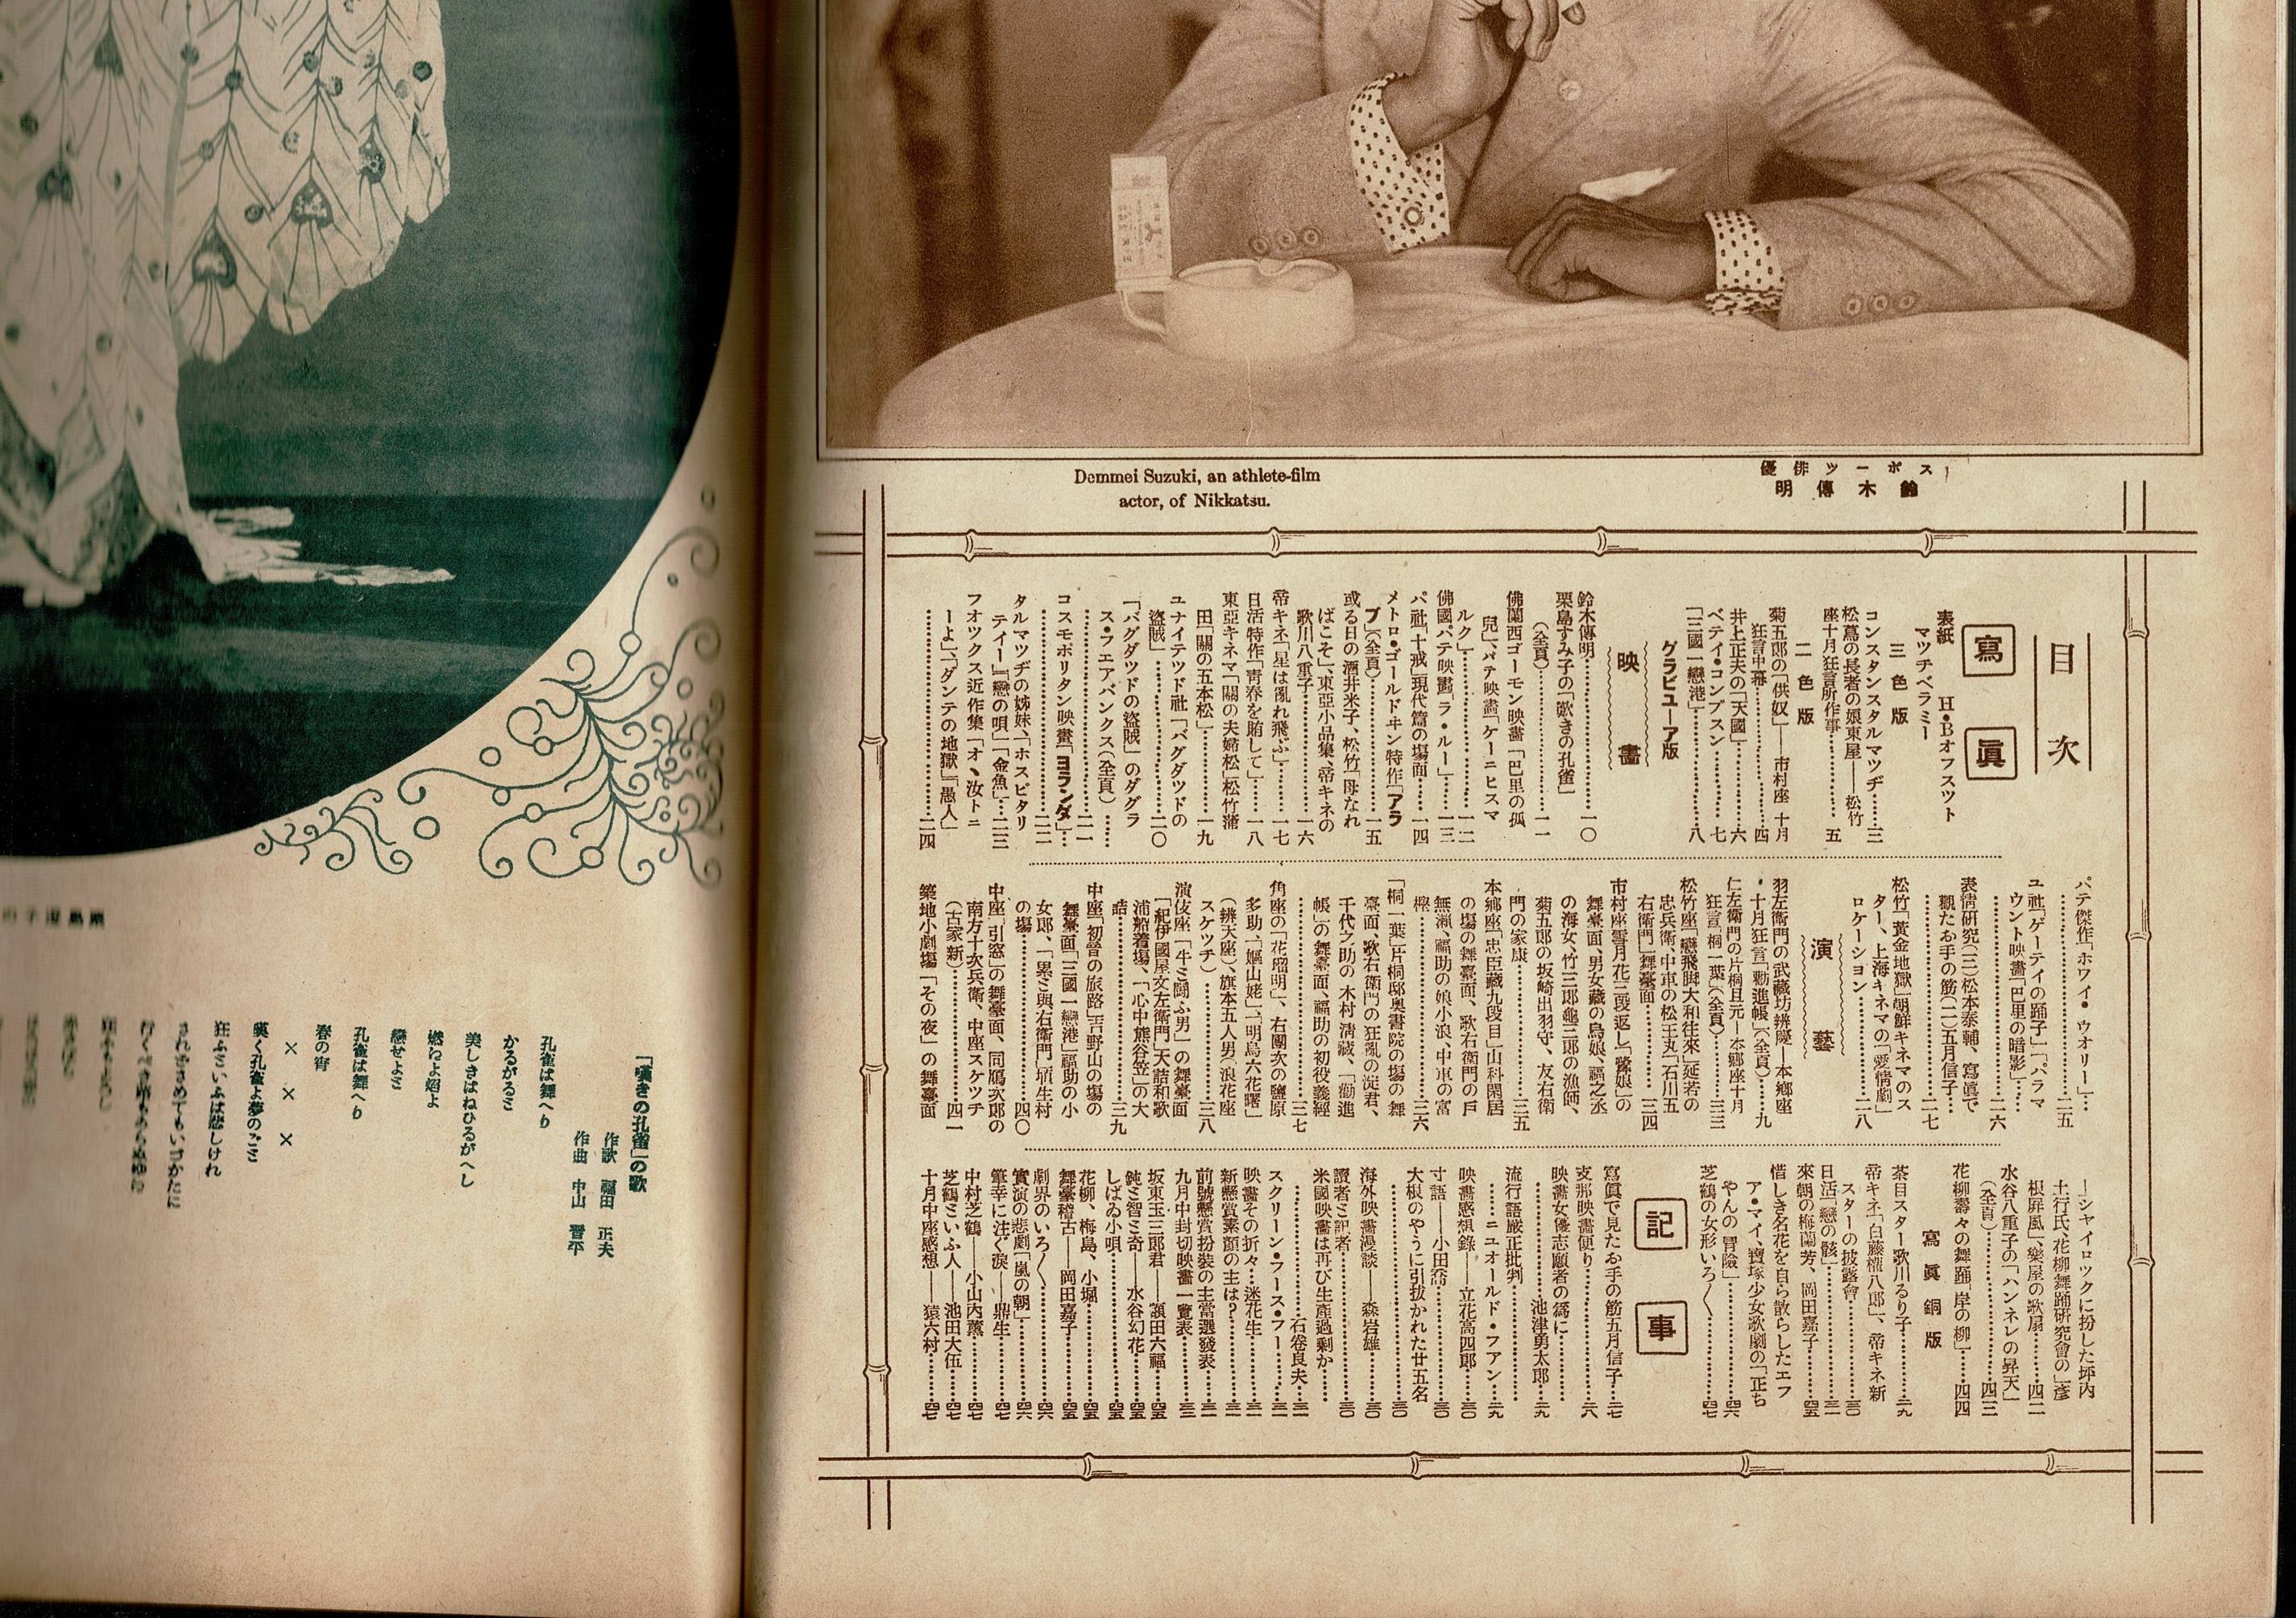 Demmei Suzuki, an athlete-film
actor, of Nikkatsu.
スポーツ俳優
鈴木傳明
目次
寫眞
表紙 H・Bオフスツト
マツチベラミー
三色版
コンスタンスタルマツヂ……三
松蔦の長者の娘東屋――松竹
座十月狂言所作事……五
二色版
菊五郎の「供奴」――市村座十月
狂言中幕……四
井上正夫の「天國」……六
ベテイ・コンプスン……七
「三國一戀港」……八
グラビユーア版
映畫
鈴木傳明……一〇
栗島すみ子の「歎きの孔雀」
(全頁)……一一
佛蘭西ゴーモン映畫「巴里の孤
兒」、パテ映畫「ケーニヒスマ
ルク」……一二
佛國パテ映畫「ラ・ルー」……一三
パ社「十戒」現代篇の場面……一四
メトロ・ゴールドヰン特作「アラ
ブ」(全頁)……一五
或る日の酒井米子、松竹「母なれ
ばこそ」、東亞小品集、帝キネの
歌川八重子……一六
帝キネ「星は亂れ飛ぶ」……一七
日活特作「靑春を賭して」……一八
東亞キネマ「關の夫婦松」松竹蒲
田「關の五本松」……一九
ユナイテツド社「バグダツドの
盜賊」……二〇
「バグダツドの盜賊」のダグラ
ス・フエアバンクス(全頁)……
……二一
コスモポリタン映畫「ヨランダ」…
……二二
タルマツヂの姊妹、「ホスピタリ
テイー」『戀の唄』「金魚」…二三
フオツクス近作集「オ、汝トニ
ーよ」、「ダンテの地獄」『愚人」
……二四
パテ傑作「ホワイ・ウオリー」…
……二五
ユ社「ゲーテイの踊子」「パラマ
ウント映畫「巴里の暗影」…
……二六
表情研究(三)松本泰輔、寫眞で
觀たお手の筋(二)五月信子…
……二七
松竹「黃金地獄」朝鮮キネマのス
ター、上海キネマの「愛情劇」
ロケーシヨン……二八
演藝
羽左衞門の武藏坊辨慶―本鄕座
十月狂言「勸進帳」(全頁)……九
仁左衞門の片桐且元―本鄕座十月
狂言「桐一葉」(全頁)……三三
松竹座「戀飛脚大和往來」延若の
忠兵衞、中車の松王丸「石川五
右衞門」舞臺面……三四
市村座雪月花三段返し「鷺娘」の
舞臺面、男女藏の鳥娘、福之丞
の海女、竹三郎龜三郎の漁師、
菊五郎の坂崎出羽守、友右衞
門の家康……三五
本鄕座「忠臣藏九段目」山科閑居
の場の舞臺面、歌右衞門の戶
無瀨、福助の娘小浪、中車の富
樫……三六
「桐一葉」片桐邸奧書院の場の舞
臺面、歌右衞門の狂亂の淀君、
千代之助の木村淸藏、「勸進
帳」の舞臺面、福助の初役義經
……三七
角座の「花瑠明」、右團次の鹽原
多助、「嫗山姥」、「明烏六花曙」
(辨天座)、旗本五人男(浪花座
スケツチ)……三八
演伎座「牛ミ鬪ふ男」の舞臺面
「紀伊國屋文左衞門」天詰和歌
浦船着場、「心中熊谷笠」の大
詰……三九
中座「初音の旅路」吉野山の場の
舞臺面「三國一戀港」福助の小
女郎、「累ミ與右衞門」埴生村
の場……四〇
中座「引窓」の舞臺面、同鴈次郎の
南方十次兵衞、中座スケツチ
(古家新)……四一
築地小劇場「その夜」の舞臺面
―シヤイロツクに扮した坪内
士行氏、花柳舞踊硏究會の「彥
根屏風」、樂屋の歌扇……四二
水谷八重子の「ハンネレの昇天」
(全頁)……四三
花柳壽々の舞踊「岸の柳」……四四
寫眞銅版
茶目スター歌川るり子……二九
帝キネ「白藤權八郎」、帝キネ新
スターの披露會……三〇
日活「戀の骸」……三一
來朝の梅蘭芳、岡田嘉子……四五
惜しき名花を自ら散らしたエフ
ア・マイ、寶塚少女歌劇の「正ち
やんの冒險」……四六
芝鶴の女形いろ〱……四七
記事
寫眞で見たお手の筋五月信子…二七
支那映畫便り……二八
映畫女優志願者の爲に……
……池津勇太郎……二九
流行語嚴正批判……
……ニユオールド・フアン…二九
映畫感想錄――立花高四郎……三〇
寸語――小田喬……三〇
大根のやうに引拔かれた廿五名
……三〇
海外映畫漫談――森岩雄……三〇
讀者ミ記者……三〇
米國映畫は再び生產過剩か……
……石卷良夫……三一
スクリーン・フース・フー……三一
映畫その折々…迷花生……三一
新懸賞素顏の主は?……三一
前號懸賞扮裝の主當選發表……三一
九月中封切映畫一覽表……三二
坂東玉三郎君――額田六福……四五
鈍ミ智ミ奇――水谷幻花……四五
しばゐ小唄……四五
花柳、梅島、小堀……四五
舞臺稽古――岡田嘉子……四五
劇界のいろ〱……四六
實演の悲劇「嵐の朝」……四六
筆幸に注ぐ淚――鼎生……四七
中村芝鶴――小山內薰……四七
芝鶴ミいふ人――池田大伍……四七
十月中座感想――猿六村……四七
「嘆きの孔雀」の歌
作歌 福田正夫
作曲 中山晋平
孔雀は舞へり
かるがるミ
美しきはねひるがへし
燃ゆよ焰よ
戀せよミ
孔雀は舞へり
春の宵
× × ×
嘆く孔雀よ夢のごミ
狂ふミいふは悲しけれ
されミさめてもいづかたに